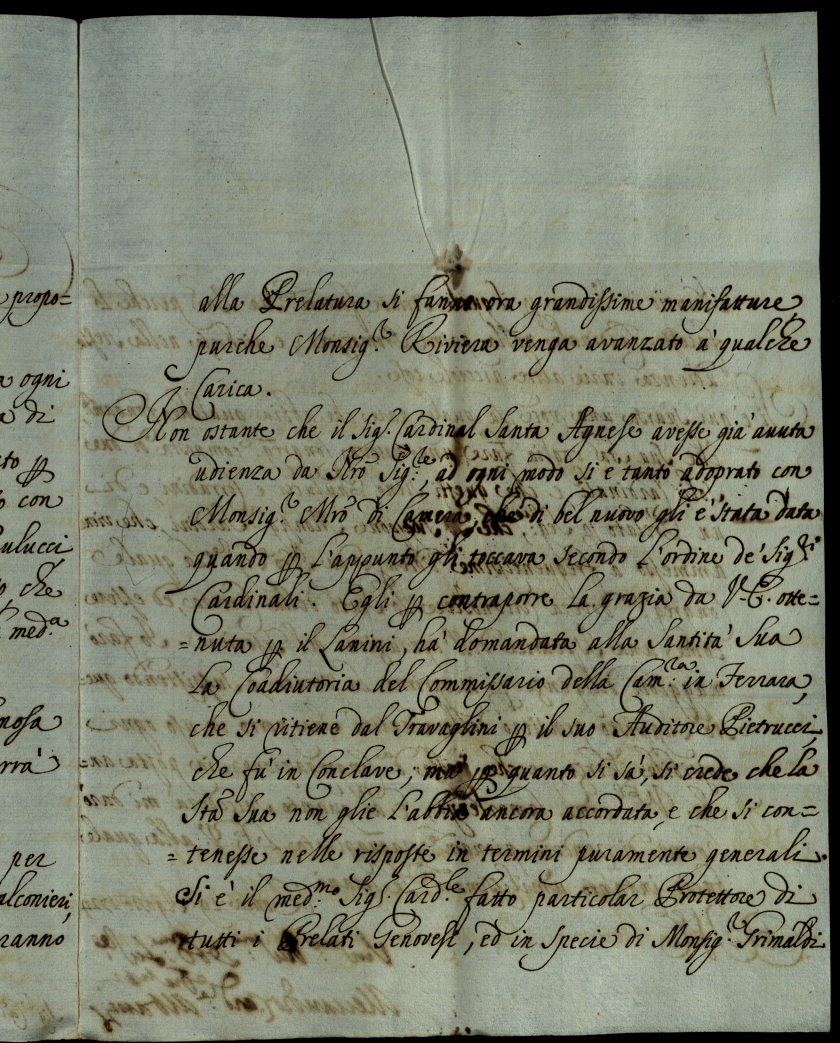 propo=
ogni
di
con
ulucci
che
med.ª
nosa
rrà
per
alconieri,
ranno
alla Prelatura si fanno ora grandissime manifatture,
purche Monsig.r Riviera venga avanzato à qualche
Carica.
Non ostante che il Sig.r Cardinal Santa Agnese avesse già avuta
udienza da Nrõ Sig.re, ad ogni modo si è tanto adoprato con
Monsig.r Mrõ di Camera, che di bel nuovo gli è stata data
quando ꝑ l'appunto gli toccava secondo l'ordine de' Sig.ri
Cardinali. Egli ꝑ contraporre la grazia da V.E. otte=
=nuta ꝑ il Lanini, hà domandata alla Santità Sua
la Coadiutoria del Commissario della Cam.ra in Ferrara,
che si ritiene dal Travaglini ꝑ il suo Auditore Pietrucci,
che fù in Conclave; mà ꝑ quanto si sà, si crede che la
Stã Sua non glie l'abbia ancora accordata, e che si con=
=tenesse nelle risposte in termini puramente generali.
Si è il med.mo Sig.r Card.le fatto particolar Protettore di
tutti i Prelati Genovesi, ed in specie di Monsig.r Grimaldi